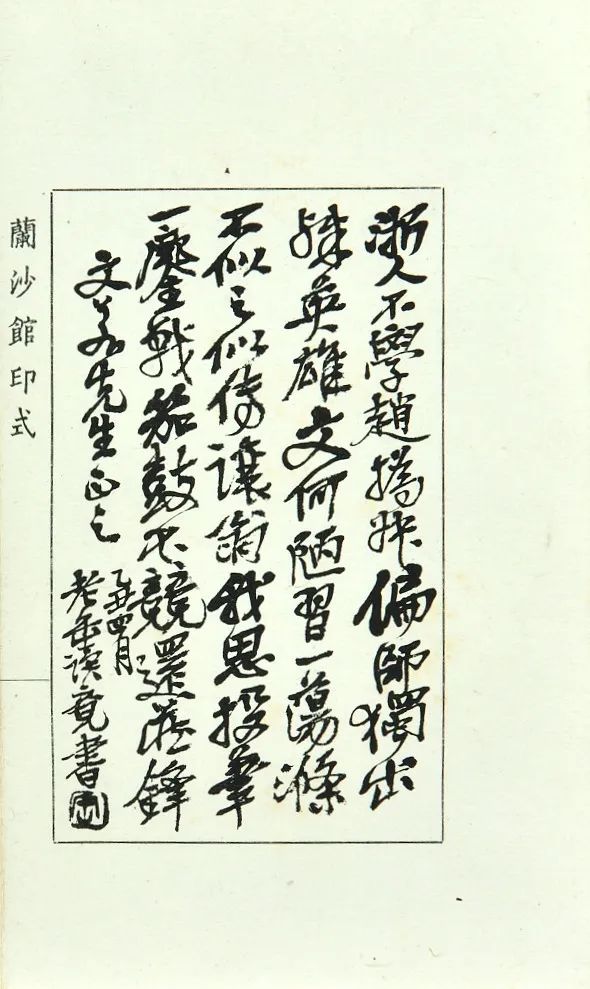 浙人不學趙撝叔偏師獨出
殊英雄文何陋習一蕩滌
不似之似傳讓翁我思投筆
一鏖戰笳鼓不競還藏鋒
先生正之
乙丑四月
老缶讀竟書
蘭沙館印式